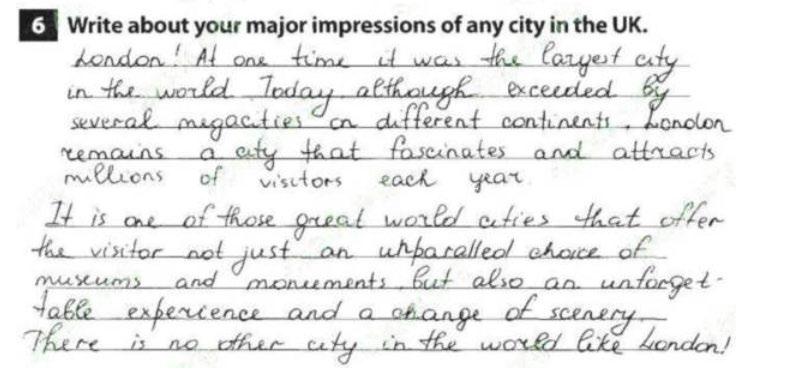 6 Write about your major impressions of any city in the UK.
London! At one time it was the largest city
in the world. Today, although exceeded by
several megacities on different continents, London
remains a city that fascinates and attracts
millions of visitors each year.
It is one of those great world cities that offer
the visitor not just an unparalled choice of
museums and monuments, but also an unforget-
table experience and a change of scenery.
There is no other city in the world like London!